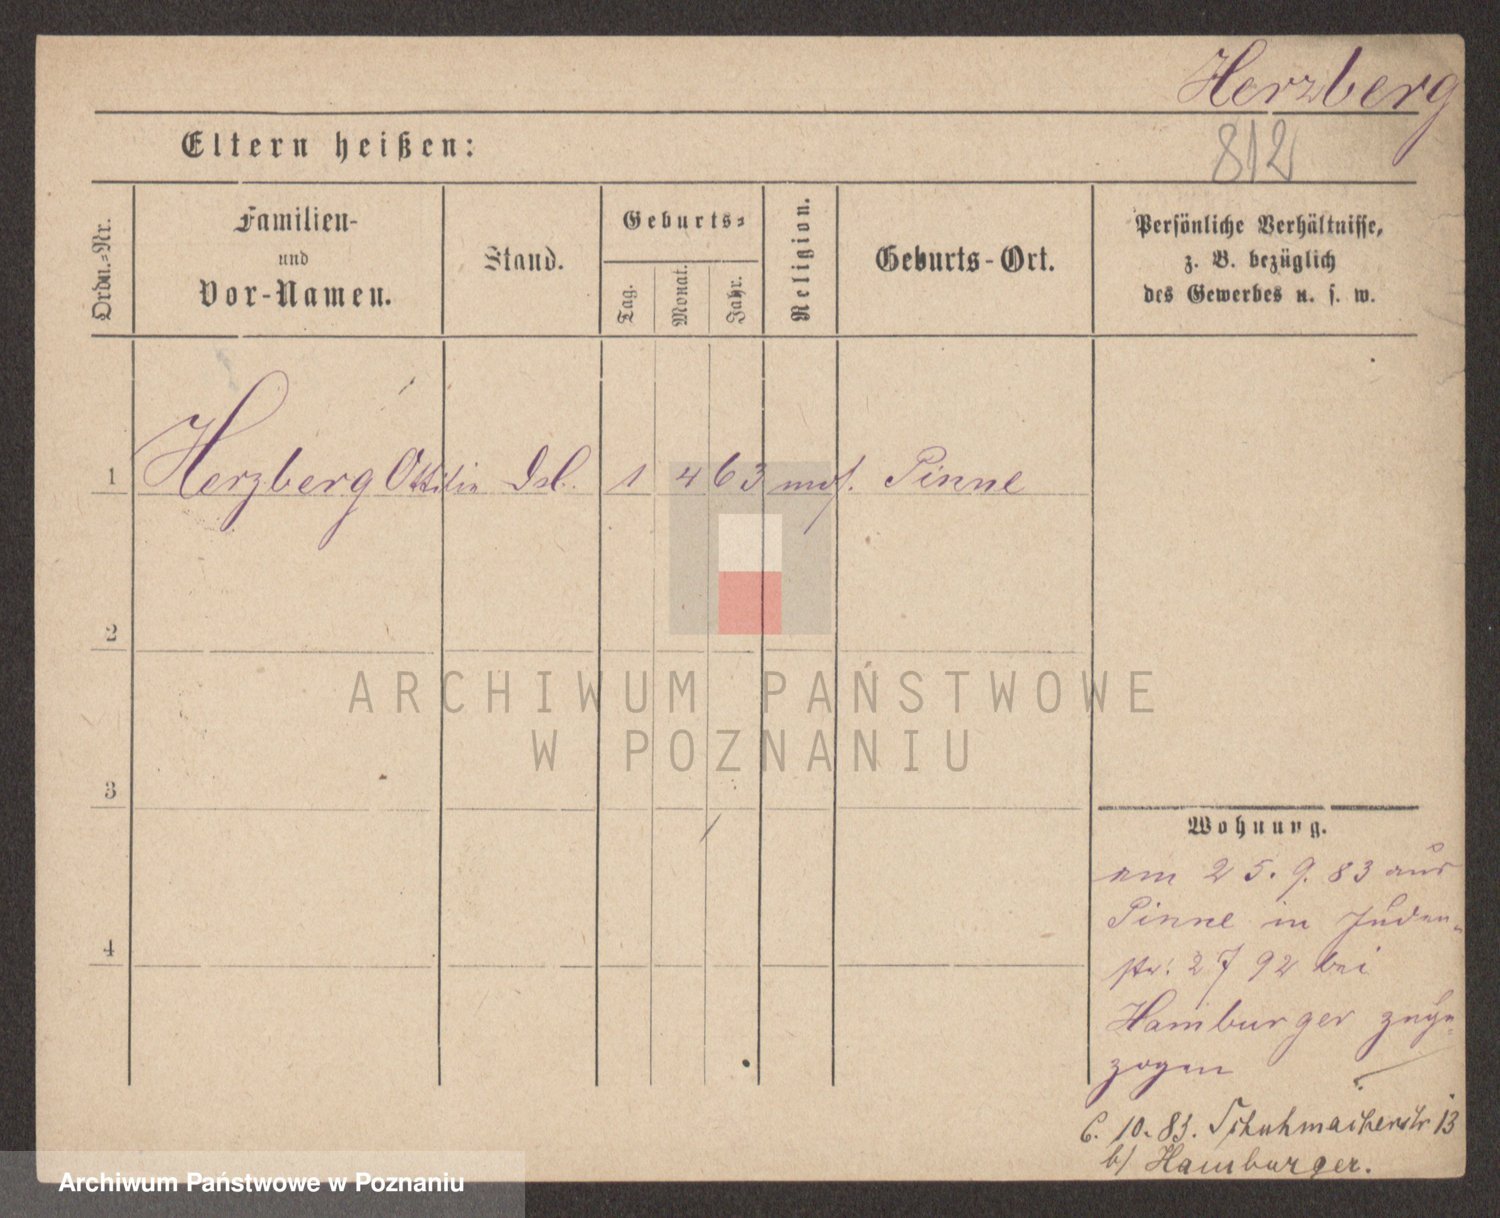 Herzberg
812
Eltern heißen:
Ordn.=Nr.
Familien-
und
Vor-Namen.
Stand.
Geburts=
Tag.
Monat.
Jahr.
Religion.
Geburts-Ort.
Persönliche Verhältnisse,
z. B. bezüglich
des Gewerbes u. s. w.
1 Herzberg Ottilie 1 4 63 mos. Pinne
2
ARCHIWUM PAŃSTWOWE
W POZNANIU
3
Wohnung.
am 25. 9. 83 aus
Pinne in Juden-
str. 27 92 bei
Hamburger zuge-
zogen
4
6. 10. 83. Schuhmacherstr 13
b/ Hamburger.
Archiwum Państwowe w Poznaniu